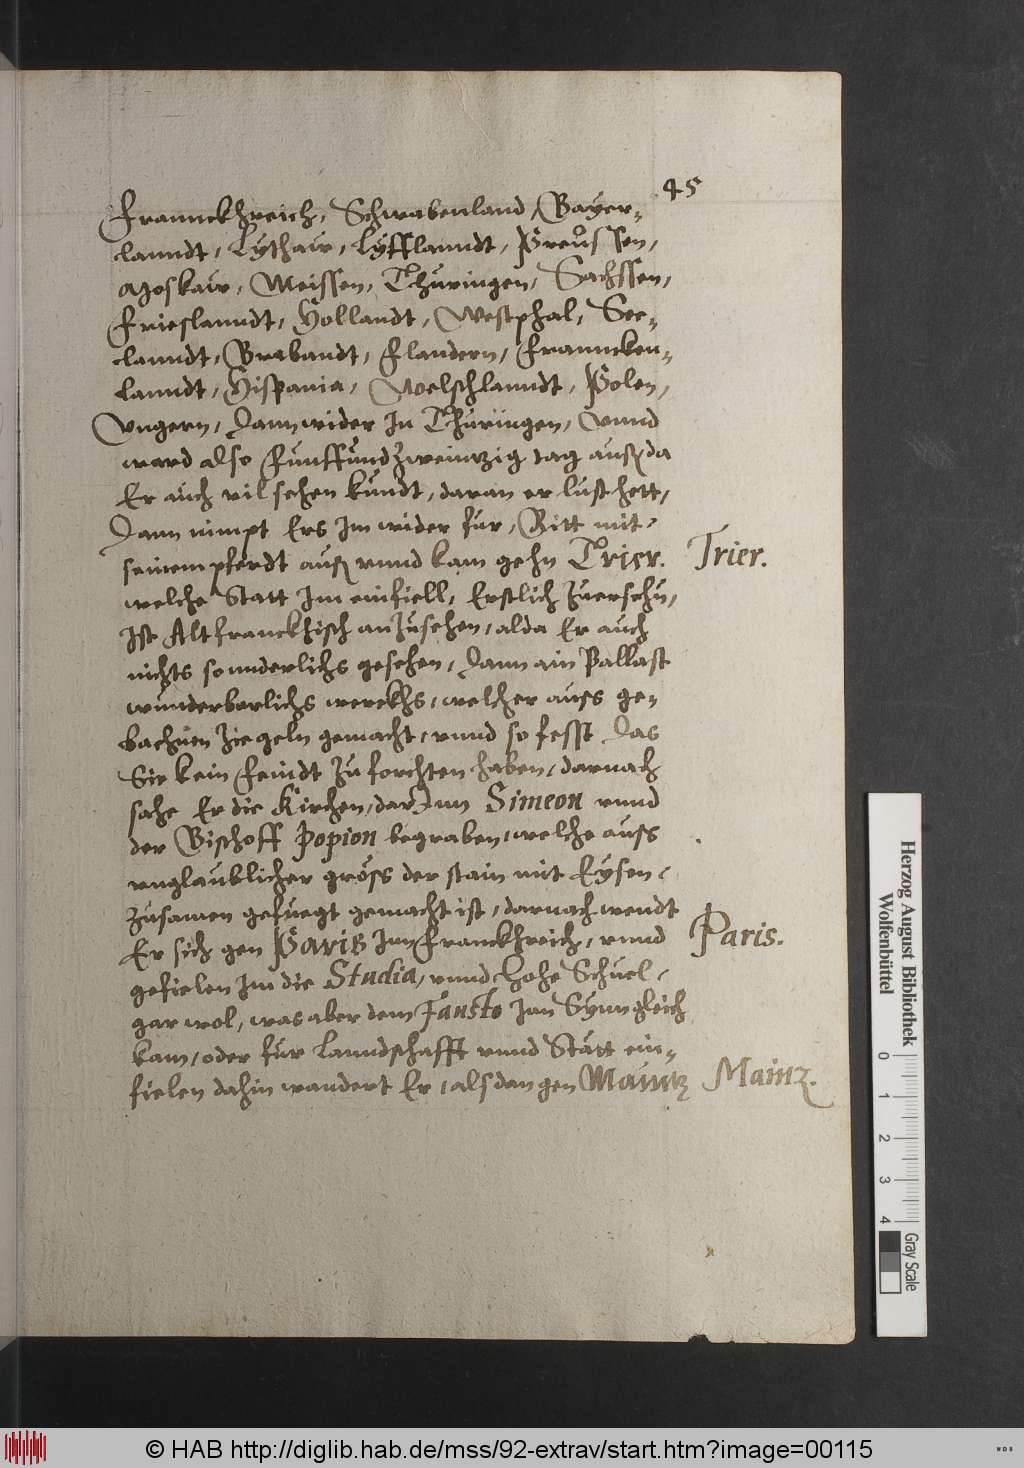 45
Franneckhreich, Schwabenland, Bayer-
lanndt, Lythaw, Lyfflanndt, Preussen,
Moskaw, Meissen, Thuringen, Sachssen,
Frieslanndt, Hollandt, Westphal, See-
lanndt, Brabandt, Flandern, Franncken-
lanndt, Hispania, Welschlanndt, Polen,
Vngern, dann wider In Thuringen, vnnd
ward also funffundzweintzig tag auß, da
Er auch vil sehen kundt, daran er lust hett,
Dann nimpt Ers Im wider fur, Ritt mit
seinem pferdt auß vnnd kam gehn Trier.
Trier.
welche Statt Im einfiell, Erstlich zuersehn,
Ist Altfranckhisch anzusehen, alda Er auch
nichts sounderlichs gesehen, dann ain Pallast
wunderbarlichs werckhs, welcher auss ge-
bachnen ziegeln gemacht, vnnd so fesst das
Sie kein feindt zu forchten haben, darnach
sahe Er die Kirchen, darInn Simeon vnnd
der Bischoff Popion begraben, welche auss
vnglaublicher gröss der stain mit Eysen
zusamen gefuegt gemacht ist, darnach wendt
Er sich gen Paris Inn Franckhreich, vnnd
Paris.
gefielen Im die Studia, vnnd Hohe Schuel
gar wol, was aber dem Fausto Inn Synn gleich
kam, oder fur lanndschafft vnnd Stätt ein-
fielen dahin wandert Er, als dan gen Mauntz
Mainz.
Herzog August Bibliothek
Wolfenbüttel
0 1 2 3 4
Gray Scale
© HAB http://diglib.hab.de/mss/92-extrav/start.htm?image=00115
WDB